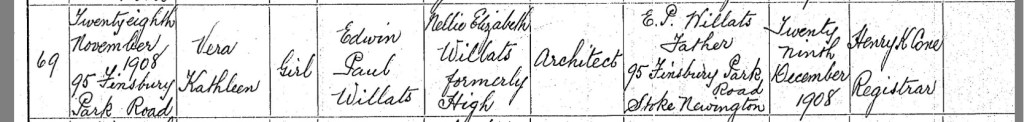 69
Twentyeighth
November
1908
95 Finsbury
Park Road
Vera
Kathleen
Girl
Edwin
Paul
Willats
Nellie Elizabeth
Willats
formerly
High
Architect
E. P. Willats
Father
95 Finsbury Park
Road
Stoke Newington
Twenty
Ninth
December
1908
Henry K Cone
Registrar